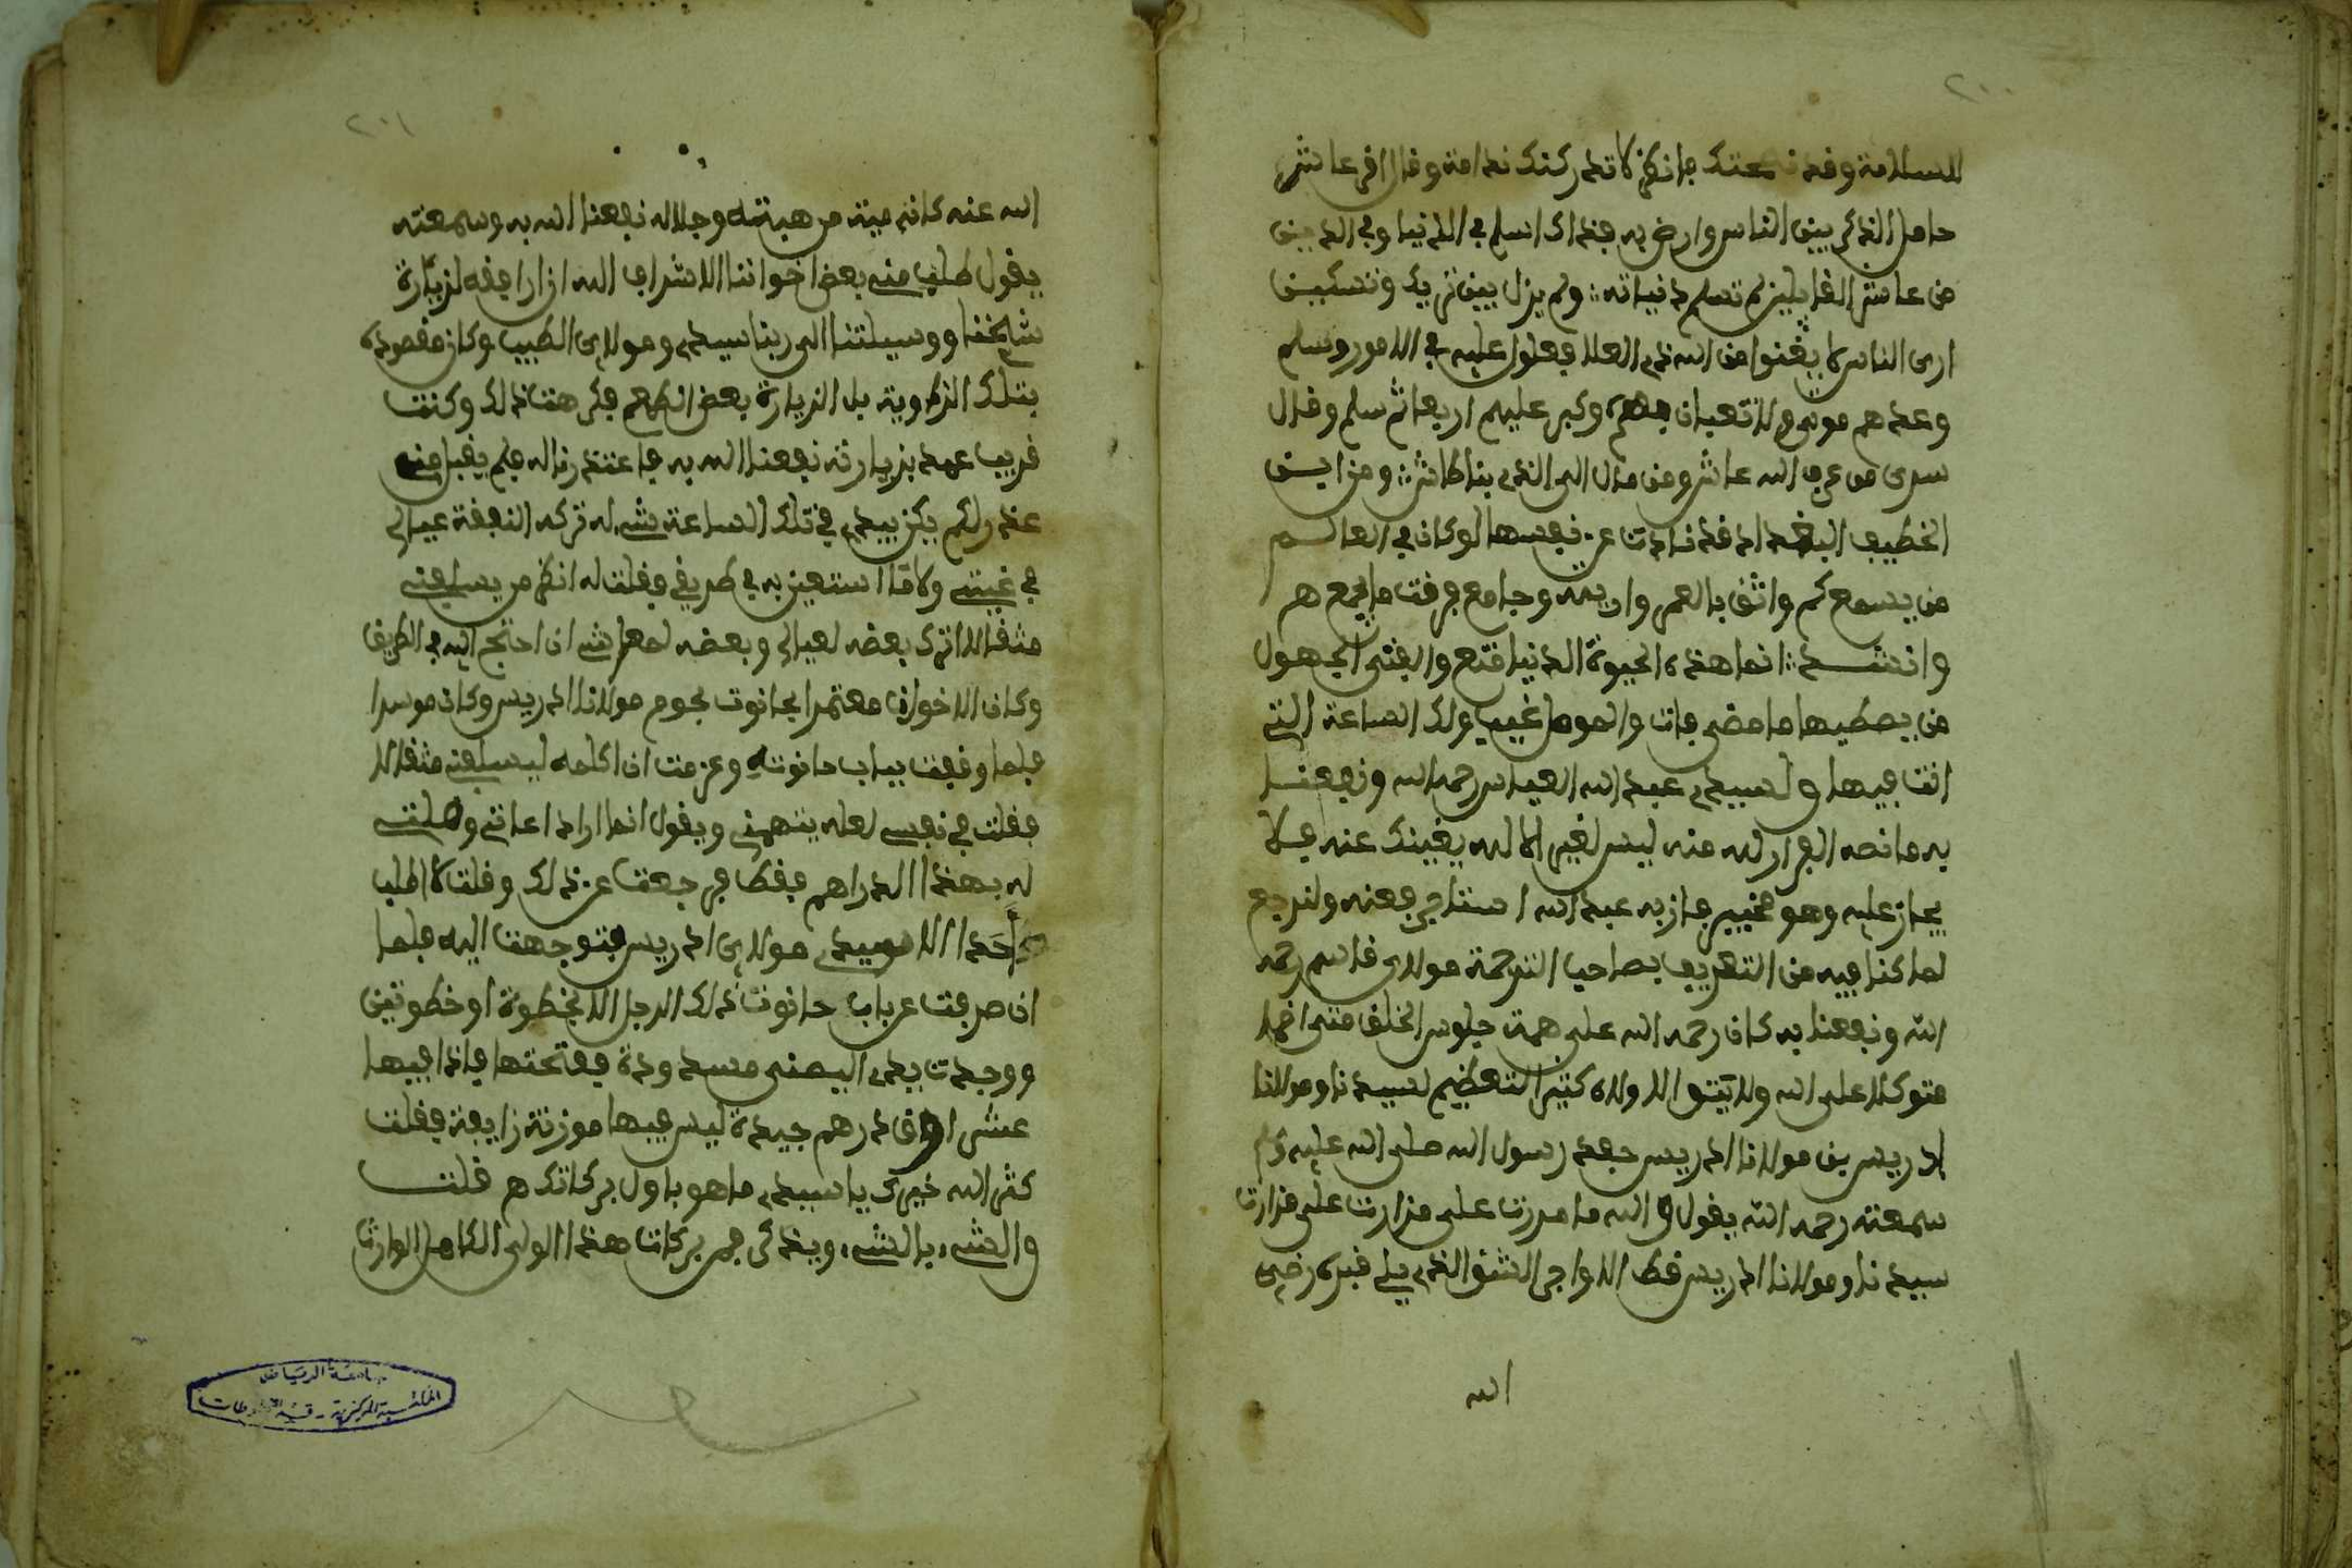 ٢٠٠
السلامة وقد نصحتك فانظر لا تدركنك ندامة وقال اخر عاشر
خامل الذكر بين الناس وارض به فذاك اسلم في الدنيا وفي الدين
من عاشر لم تسلم ديانته ولم يزل بين تحريك وتسكين
ارى الناس لا من الله ذي العلا عليه في الامور وسلم
وعدهم موتى ولا تعبان بهم وكبر عليهم اربعا ثم سلم وقال
سرى من عرف الله عاش ومن مال الى الدنيا طاش ومن اين
الخطيب البغداد قد نادت عن نفسها لو كان في العالم
من يسمع كم واثق بالعمر واريته وجامع فرقت ما يجمع هم
وانشد انما هذه الحيوة الدنيا متع والفتى الجهول
من يصطفيها ما مضى فات والمومل غيب ولك الساعة التي
انت فيها ولسيدي عبد الله رحمه الله ونفعنا
به ما نصه الفرار لله منه ليس لغير الا لله يغنيك عنه فلا
يجاز عليه وهو مخبير جاز به عبد الله ولنرجع
لما كنا فيه من التعريف بصاحب الترجمة مولاي قاسم رحمه
الله ونفعنا به كان رحمه الله على همة جلوس الخلق
متوكلا على الله ولا كثير التعظيم لسيدنا ومولانا
ادريس بن مولانا ادريس حفيد رسول الله صلى الله عليه وسلم
سمعته رحمه الله يقول والله ما مررت على مزارت
سيدنا ومولانا ادريس قط الا واجد الشق الذي يلي قبره رضي
الله
٢٠١
الله عنه كانه ميت من هيبته وجلاله نفعنا الله به وسمعته
يقول طلب منه بعض اخواننا الاشراف لله ان ارافقه لزيارة
شيخنا ووسيلتنا الى ربنا سيدي ومولاي الطيب وكان مقصوده
بتلك الزاوية بل الزيارة بعض الطمع فكرهت ذلك وكنت
قريب عهد بزيارته نفعنا الله به فاعتذرت له فلم يقبل منه
عذر ولم يكن بيدي في تلك الساعة شيء له تركه النفقة عيالي
في غيبتي ولا ما استعين به في طريقي فقلت له انظر من يسلفني
مثقالا اترك بعضه لعيالي وبعضه لمعاشي ان احتج اليه في الطريق
وكان الاخوان معتمرا بحانوت بجوم مولانا ادريس وكان موسرا
فلما وقفت بباب حانوته وعزمت ان اكلمه ليسلفني مثقالا
فقلت في نفسي لعله يتهمني ويقول انما اراد اعانتي
له بهذا الدراهم فقط فرجعت عن ذلك وقلت لا اطلب
احدا الا سيدي مولاي ادريس فتوجهت اليه فلما
ان صرفت عن باب حانوت ذلك الرجل الا بخطوة او خطوتين
ووجدت بيدي اليمنى مسدودة ففتحتها فاذا فيها
عشر اواق درهم جيدة ليس فيها موزنة زايفة فقلت
كثر الله خيرك يا سيدي ما هو باول بركاتكم قلت
والشيء بالشيء ويذكر في بركات هذا الولي الكامل الوارث
جامعة الرياض
المكتبة المركزية - قسم المخطوطات